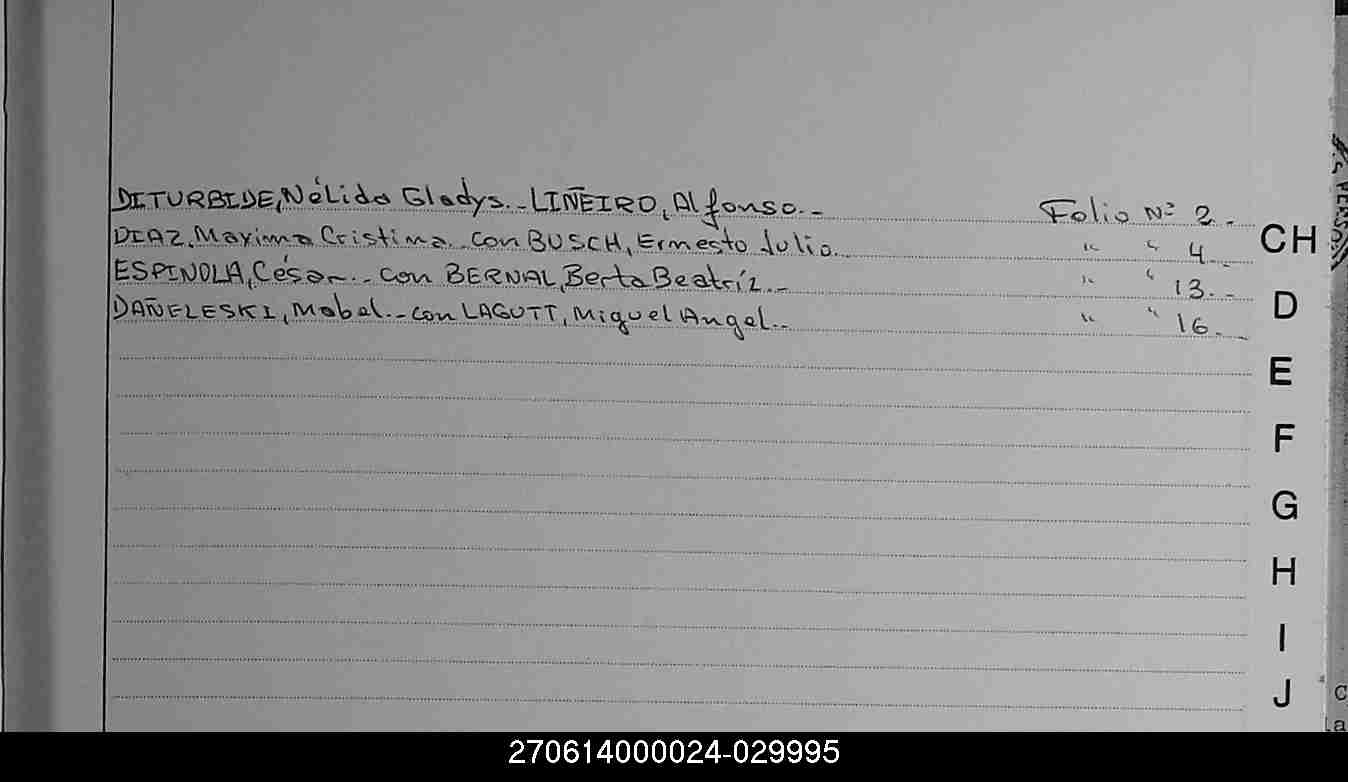 DITURBIDE, Nélida Gladys.- LIÑEIRO, Alfonso.- Folio Nº 2.-
DIAZ, Maxima Cristina.- con BUSCH, Ernesto Julio.- " " 4.-
ESPINOLA, César.- con BERNAL, Berta Beatríz.- " " 13.-
DAÑELESKI, Mabel.- con LAGUTT, Miguel Angel.- " " 16.-
CH
D
E
F
G
H
I
J
270614000024-029995